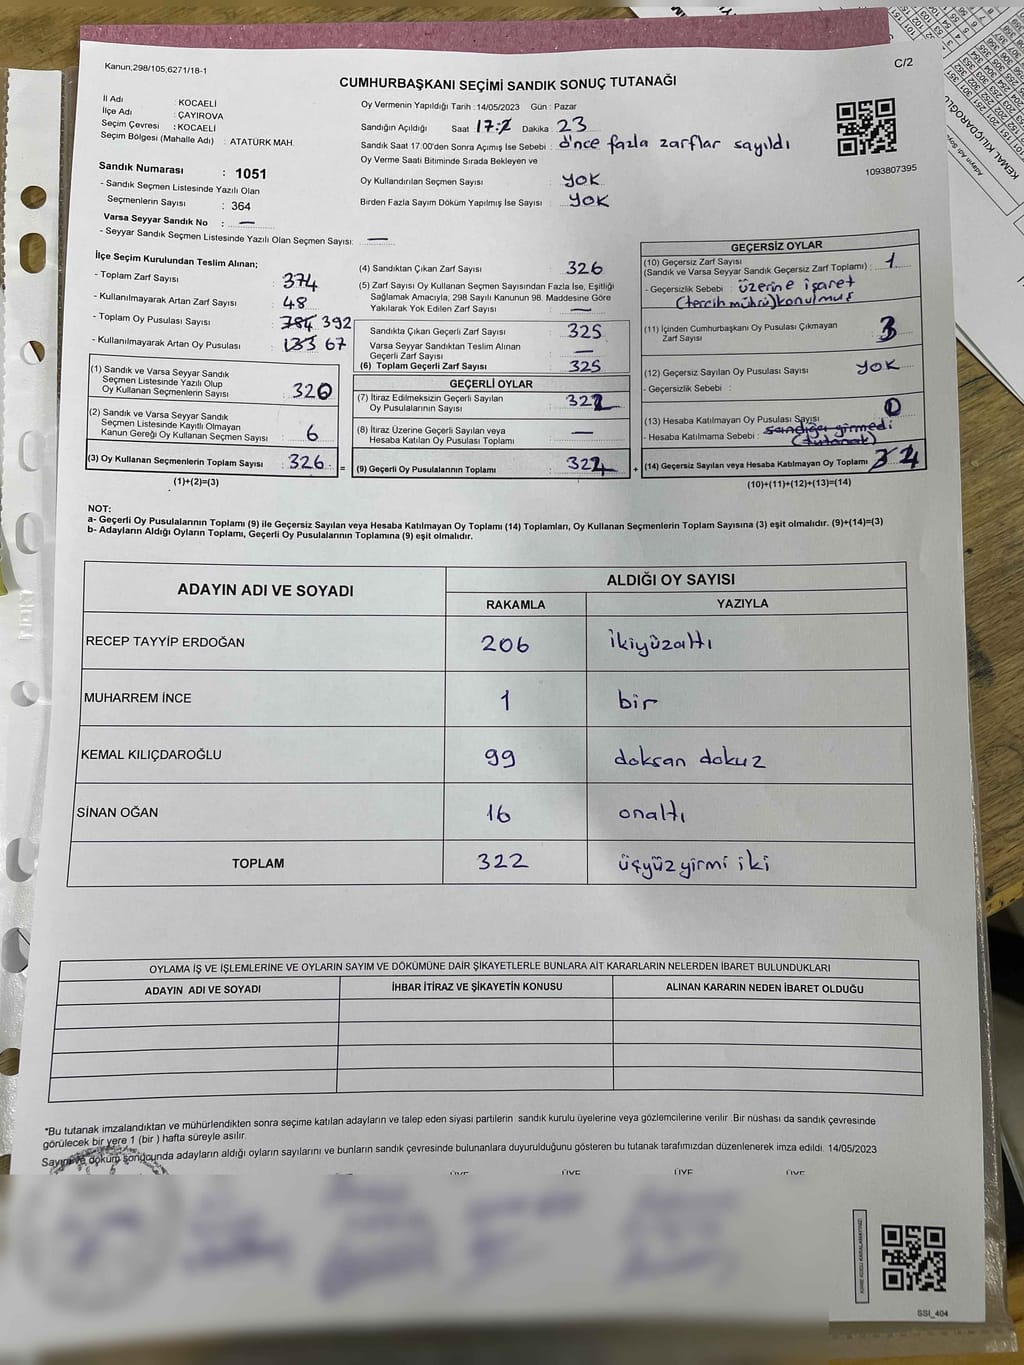 Kanun;298/105,6271/18-1
C/2
CUMHURBAŞKANI SEÇİMİ SANDIK SONUÇ TUTANAĞI
İl Adı : KOCAELİ
İlçe Adı : ÇAYIROVA
Seçim Çevresi : KOCAELİ
Seçim Bölgesi (Mahalle Adı) : ATATÜRK MAH.
Oy Vermenin Yapıldığı Tarih : 14/05/2023 Gün : Pazar
Sandığın Açıldığı Saat 17:2 Dakika : 23
Sandık Saat 17.00'den Sonra Açımış İse Sebebi : önce fazla zarflar sayıldı
Oy Verme Saati Bitiminde Sırada Bekleyen ve
Oy Kullandırılan Seçmen Sayısı : YOK
Birden Fazla Sayım Döküm Yapılmış İse Sayısı : YOK
1093807395
Sandık Numarası : 1051
- Sandık Seçmen Listesinde Yazılı Olan
Seçmenlerin Sayısı : 364
Varsa Seyyar Sandık No : —
- Seyyar Sandık Seçmen Listesinde Yazılı Olan Seçmen Sayısı: —
İlçe Seçim Kurulundan Teslim Alınan;
- Toplam Zarf Sayısı : 374
- Kullanılmayarak Artan Zarf Sayısı : 48
- Toplam Oy Pusulası Sayısı : 784 392
- Kullanılmayarak Artan Oy Pusulası : 133 67
(1) Sandık ve Varsa Seyyar Sandık
Seçmen Listesinde Yazılı Olup
Oy Kullanan Seçmenlerin Sayısı : 320
(2) Sandık ve Varsa Seyyar Sandık
Seçmen Listesinde Kayıtlı Olmayan
Kanun Gereği Oy Kullanan Seçmen Sayısı : 6
(3) Oy Kullanan Seçmenlerin Toplam Sayısı : 326 =
(1)+(2)=(3)
(4) Sandıktan Çıkan Zarf Sayısı : 326
(5) Zarf Sayısı Oy Kullanan Seçmen Sayısından Fazla İse, Eşitliği
Sağlamak Amacıyla, 298 Sayılı Kanunun 98. Maddesine Göre
Yakılarak Yok Edilen Zarf Sayısı : —
Sandıkta Çıkan Geçerli Zarf Sayısı : 325
Varsa Seyyar Sandıktan Teslim Alınan
Geçerli Zarf Sayısı : —
(6) Toplam Geçerli Zarf Sayısı : 325
GEÇERLİ OYLAR
(7) İtiraz Edilmeksizin Geçerli Sayılan
Oy Pusulalarının Sayısı : 322
(8) İtiraz Üzerine Geçerli Sayılan veya
Hesaba Katılan Oy Pusulası Toplamı : —
(9) Geçerli Oy Pusulalarının Toplamı : 322 +
GEÇERSİZ OYLAR
(10) Geçersiz Zarf Sayısı
(Sandık ve Varsa Seyyar Sandık Geçersiz Zarf Toplamı) : 1
- Geçersizlik Sebebi : üzerine işaret
(tercih mührü) konulmuş
(11) İçinden Cumhurbaşkanı Oy Pusulası Çıkmayan
Zarf Sayısı : 3
(12) Geçersiz Sayılan Oy Pusulası Sayısı : YOK
- Geçersizlik Sebebi :
(13) Hesaba Katılmayan Oy Pusulası Sayısı : 0
- Hesaba Katılmama Sebebi : sandığa girmedi
(tutanak)
(14) Geçersiz Sayılan veya Hesaba Katılmayan Oy Toplamı : 4
(10)+(11)+(12)+(13)=(14)
NOT:
a- Geçerli Oy Pusulalarının Toplamı (9) ile Geçersiz Sayılan veya Hesaba Katılmayan Oy Toplamı (14) Toplamları, Oy Kullanan Seçmenlerin Toplam Sayısına (3) eşit olmalıdır. (9)+(14)=(3)
b- Adayların Aldığı Oyların Toplamı, Geçerli Oy Pusulalarının Toplamına (9) eşit olmalıdır.
ADAYIN ADI VE SOYADI
ALDIĞI OY SAYISI
RAKAMLA YAZIYLA
RECEP TAYYİP ERDOĞAN 206 ikiyüzaltı
MUHARREM İNCE 1 bir
KEMAL KILIÇDAROĞLU 99 doksan dokuz
SİNAN OĞAN 16 onaltı
TOPLAM 322 üçyüz yirmi iki
OYLAMA İŞ VE İŞLEMLERİNE VE OYLARIN SAYIM VE DÖKÜMÜNE DAİR ŞİKAYETLERLE BUNLARA AİT KARARLARIN NELERDEN İBARET BULUNDUKLARI
ADAYIN ADI VE SOYADI İHBAR İTİRAZ VE ŞİKAYETİN KONUSU ALINAN KARARIN NEDEN İBARET OLDUĞU
*Bu tutanak imzalandıktan ve mühürlendikten sonra seçime katılan adayların ve talep eden siyasi partilerin sandık kurulu üyelerine veya gözlemcilerine verilir. Bir nüshası da sandık çevresinde
görülecek bir yere 1 (bir ) hafta süreyle asılır.
Sayım ve döküm sonucunda adayların aldığı oyların sayılarını ve bunların sandık çevresinde bulunanlara duyurulduğunu gösteren bu tutanak tarafımızdan düzenlenerek imza edildi. 14/05/2023
ÜYE ÜYE ÜYE ÜYE
SSI_404
KEMAL KILIÇDAROĞLU